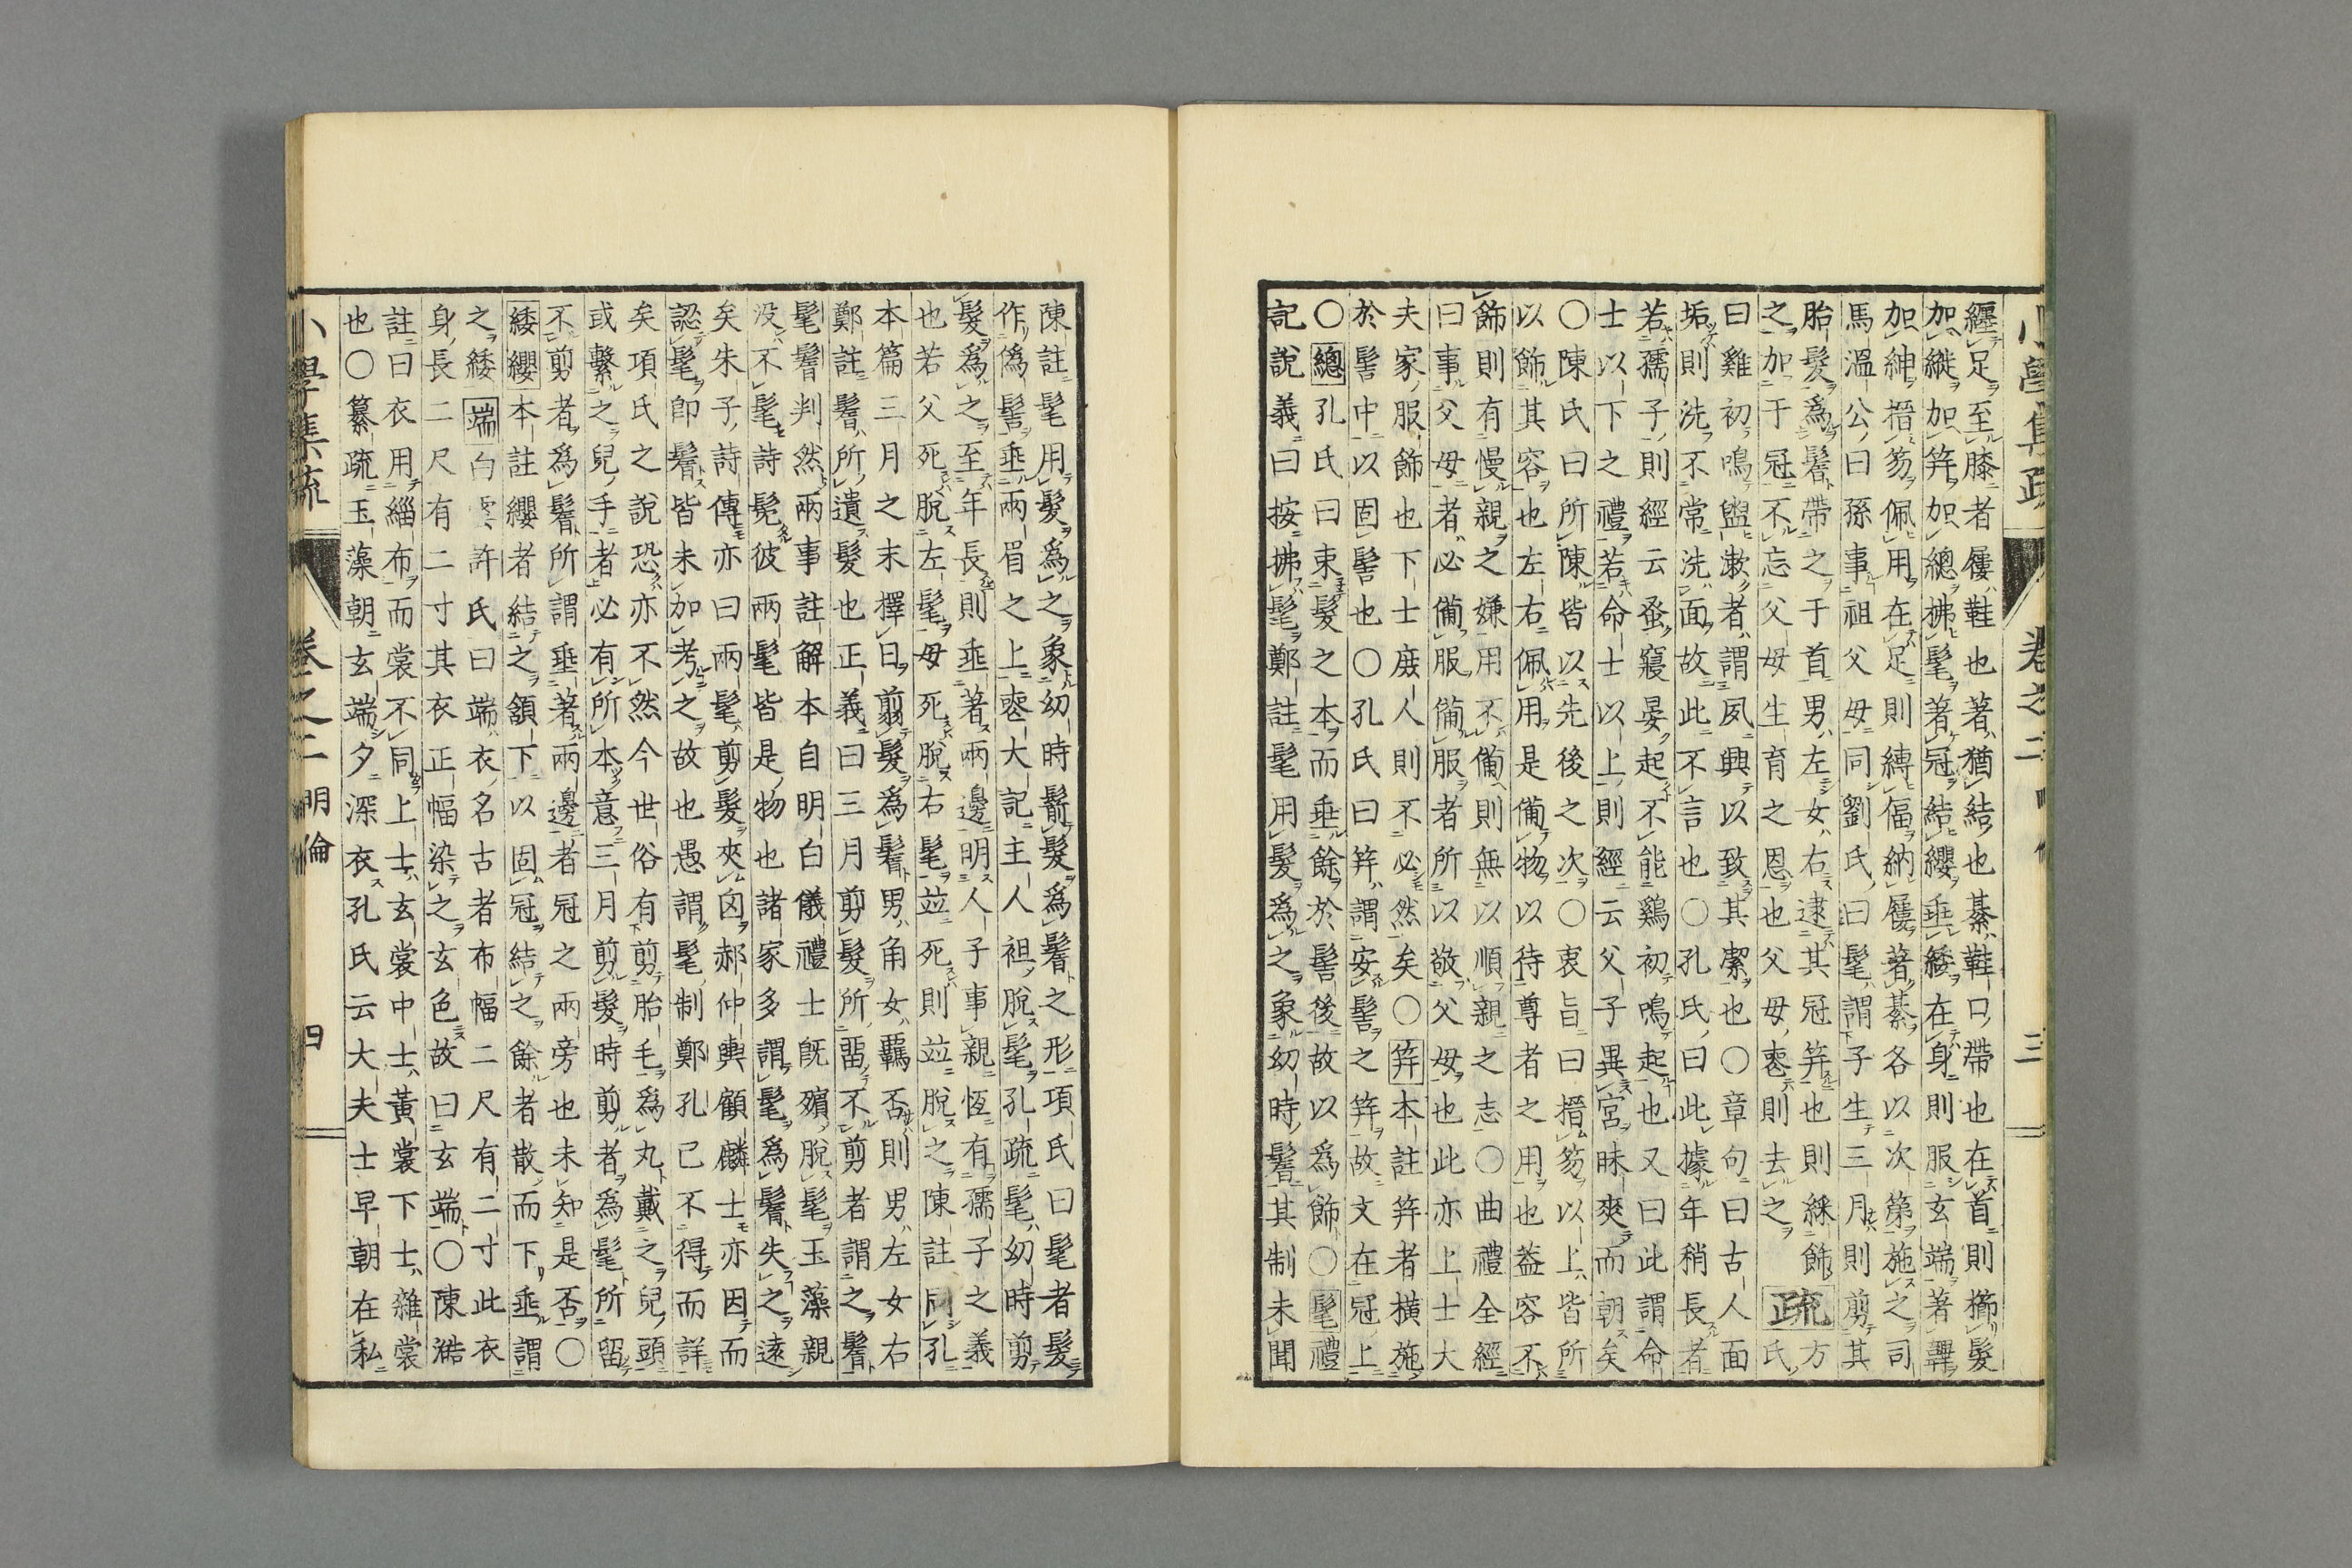 纒足至膝者屨鞋也著猶結也綦鞋口帶也在首則櫛髮
加縰加笄加總拂髦著冠結纓垂緌在身則服玄端著鞸
加紳搢笏佩用在足則縛偪納屨著綦各以次第施之司
馬溫公曰孫事祖父母同劉氏曰髦謂子生三月則剪其
胎髮爲鬌帶之于首男左女右逮其冠笄也則綵飾
之加于冠不忘父母生育之恩也父母喪則去之疏方氏
曰雞初鳴盥漱者謂夙興以致其潔也〇章句曰古人面
垢則洗不常洗面故此不言也〇孔氏曰此據年稍長者
若孺子則經云蚤寢晏起不能鷄初鳴起也又曰此謂命
士以下之禮若命士以上則經云父子異宮昧爽而朝矣
〇陳氏曰所陳皆以先後之次〇衷旨曰搢笏以上皆所
以飾其容也左右佩用是備物以待尊者之用也葢容不
飾則有慢親之嫌用不備則無以順親之志〇曲禮全經
曰事父母者必備服備服者所以敬父母也此亦上士大
夫家服飾也下士庶人則不必然矣〇笄本註笄者横施
於髻中以固髻也〇孔氏曰笄謂安髻之笄故文在冠上
〇總孔氏曰束髮之本而垂餘於髻後故以爲飾〇髦禮
記說義曰按拂髦鄭註髦用髮爲之象幼時鬌其制未聞
小學集疏　卷之二　三
陳註髦用髮爲之象幼時鬋髮爲鬌之形項氏曰髦者髮
作僞髻垂兩眉之上喪大記主人袒脫髦孔疏髦幼時剪
髮爲之至年長則垂著兩邊明人子事親恆有孺子之義
也若父死脫左髦母死脫右髦竝死則竝脫之陳註同孔
本篇三月之末擇日剪髮爲鬌男角女羈否則男左女右
鄭註鬌所遺髮也正義曰三月剪髮所畱不剪者謂之鬌
髦鬌判然兩事註解本自明白儀禮士旣殯脫髦玉藻親
没不髦詩髧彼兩髦皆是物也諸家多謂髦爲鬌失之遠
矣朱子詩傳亦曰兩髦剪髮夾囟郝仲輿顧麟士亦因而
認髦卽鬌皆未加考之故也愚謂髦制鄭孔已不得而詳
矣項氏之說恐亦不然今世俗有剪胎毛爲丸戴之兒頭
或繫之兒手者必有所本意三月剪髮時剪者爲髦所留
不剪者爲鬌所謂垂著兩邊者冠之兩旁也未知是否〇
緌纓本註纓者結之頷下以固冠結之餘者散而下垂謂
之緌端白雲許氏曰端衣名古者布幅二尺有二寸此衣
身長二尺有二寸其衣正幅染之玄色故曰玄端〇陳澔
註曰衣用緇布而裳不同上士玄裳中士黃裳下士雜裳
也〇纂疏玉藻朝玄端夕深衣孔氏云大夫士早朝在私
小學集疏　卷之二　明倫　四